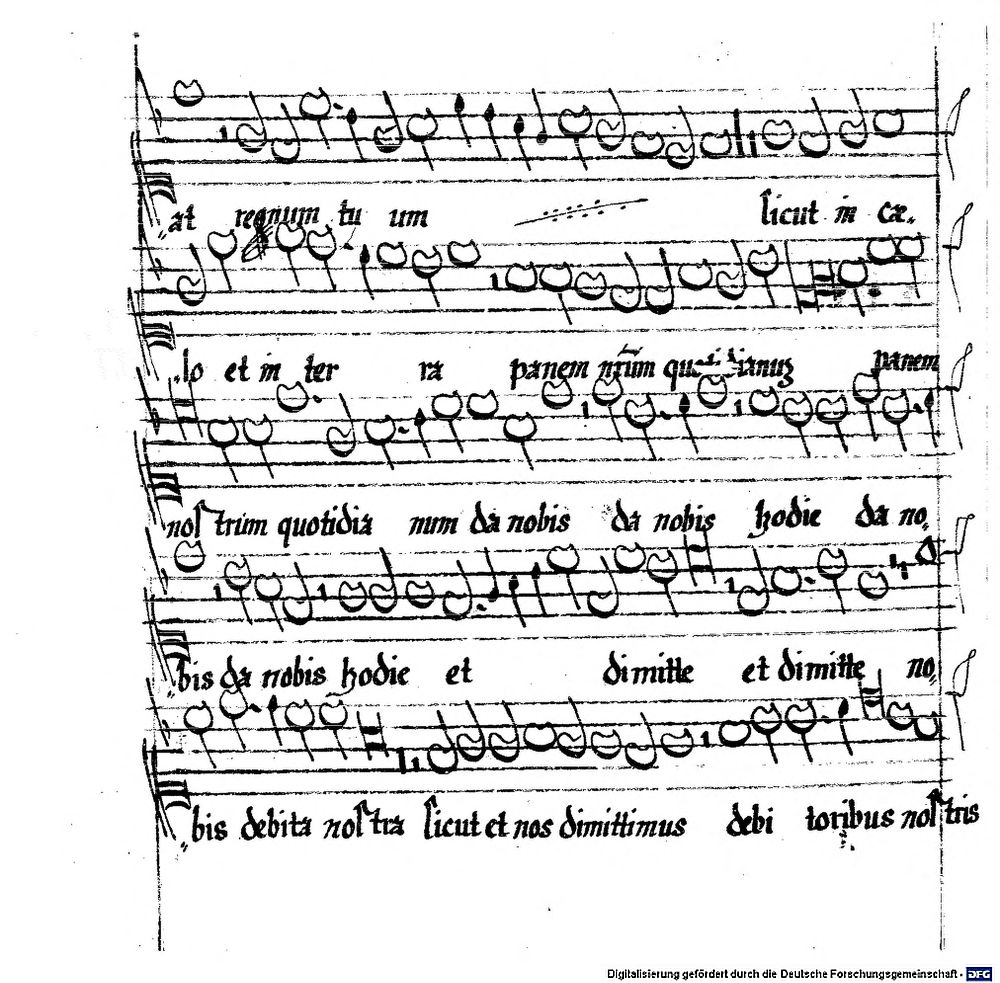 at regnum tu um sicut in cæ„
„lo et in ter ra panem nr̄um quotidianuʒ panem
nostrum quotidia num da nobis da nobis hodie da no„
„bis da nobis hodie et dimitte et dimitte no„
„bis debita nostra sicut et nos dimittimus debi toribus nostris
Digitalisierung gefördert durch die Deutsche Forschungsgemeinschaft - DFG